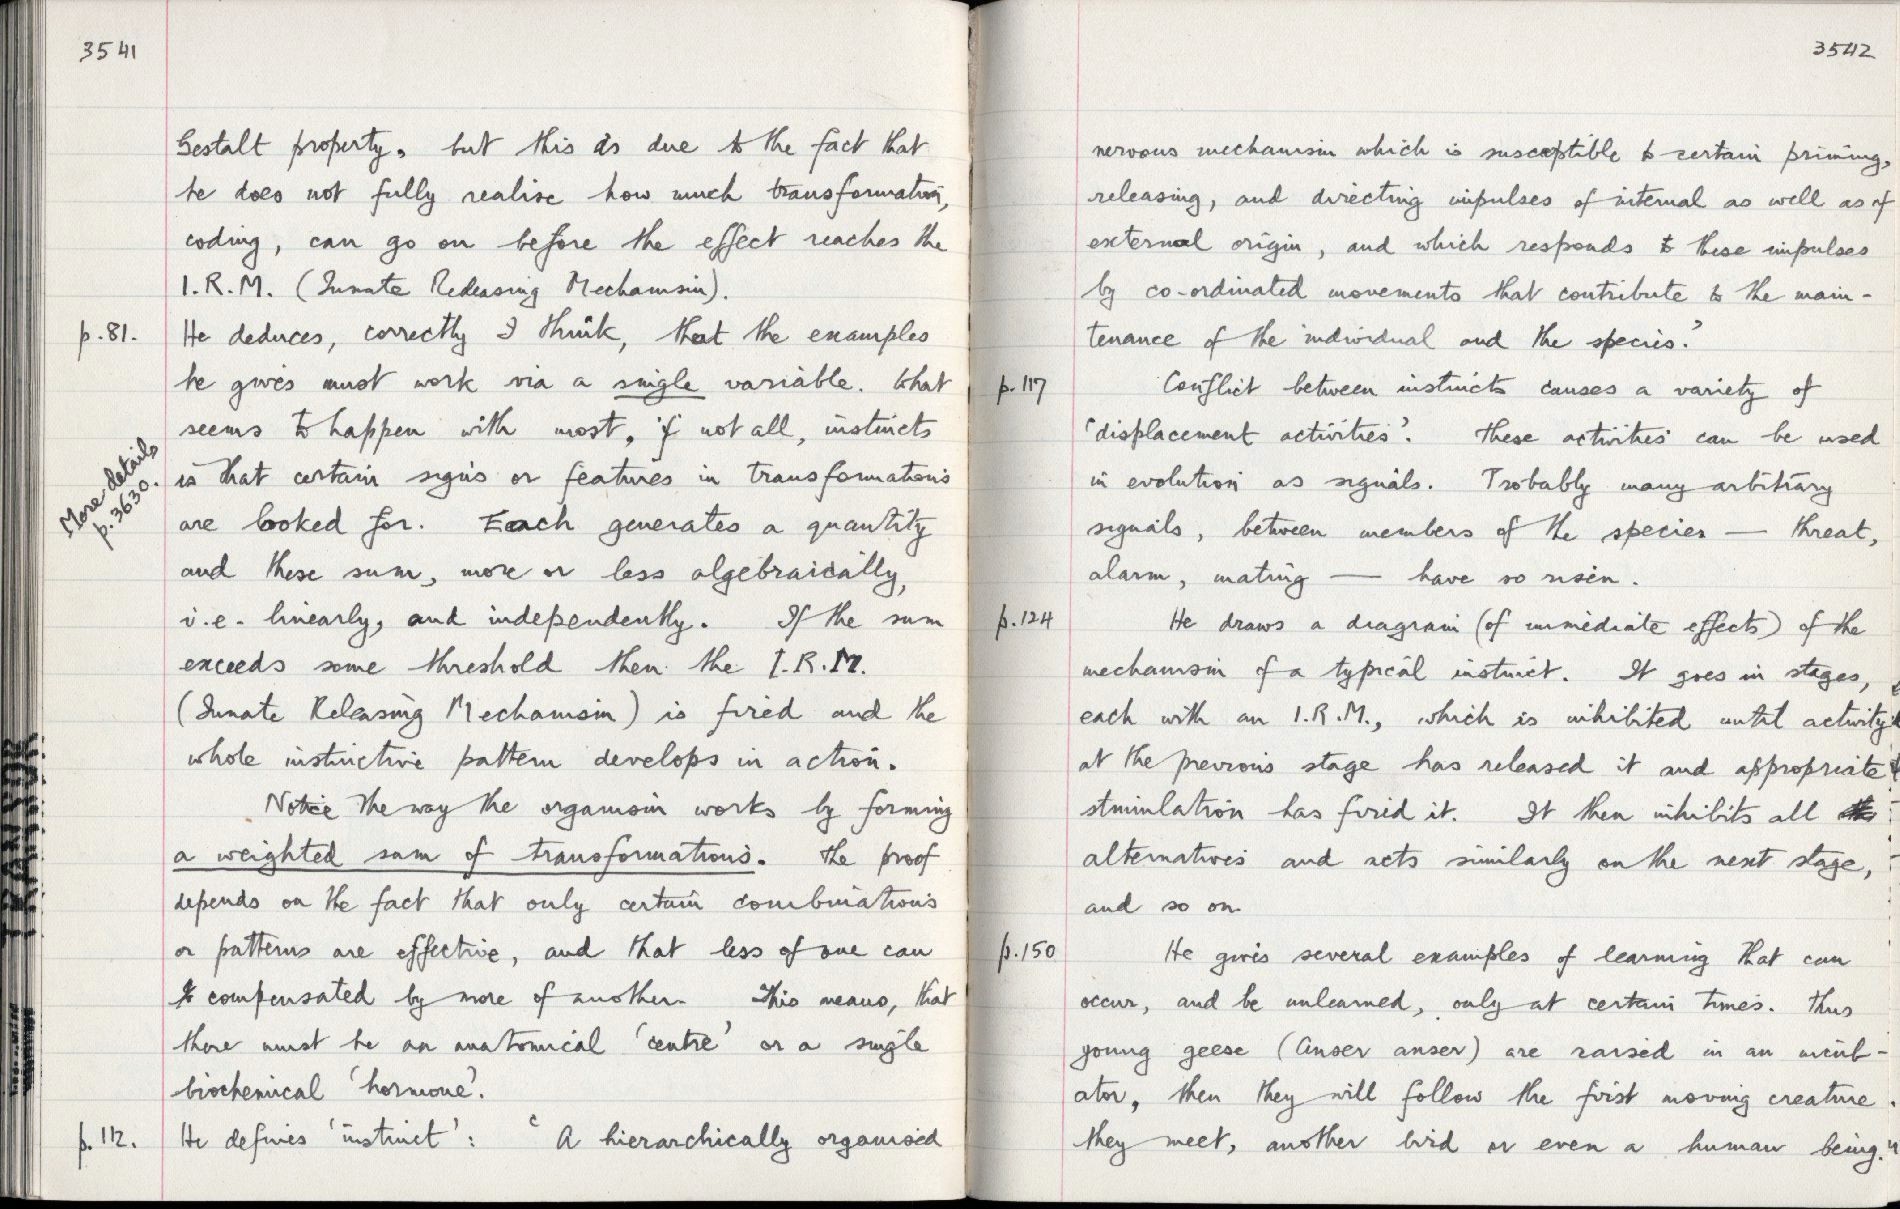 3541
Gestalt property, but this is due to the fact that
he does not fully realise how much transformation,
coding, can go on before the effect reaches the
I.R.M. (Innate Releasing Mechanism).
p.81. He deduces, correctly I think, that the examples
he gives must work via a single variable. What
seems to happen with most, if not all, instincts
is that certain signs or features in transformations
More details
p.3630.
are looked for. Each generates a quantity
and these sum, more or less algebraically,
i.e. linearly, and independently. If the sum
exceeds some threshold then the I.R.M.
(Innate Releasing Mechanism) is fired and the
whole instinctive pattern develops in action.
Notice the way the organism works by forming
a weighted sum of transformations. The proof
depends on the fact that only certain combinations
or patterns are effective, and that less of one can
be compensated by more of another. This means, that
there must be an anatomical 'centre' or a single
biochemical 'hormone'.
p.112. He defines 'instinct': 'A hierarchically organised
3542
nervous mechanism which is susceptible to certain priming,
releasing, and directing impulses of internal as well as of
external origin, and which responds to these impulses
by co-ordinated movements that contribute to the main-
tenance of the individual and the species.'
p.117 Conflict between instincts causes a variety of
'displacement activities'. These activities can be used
in evolution as signals. Probably many arbitrary
signals, between members of the species — threat,
alarm, mating — have so risen.
p.124 He draws a diagram (of immediate effects) of the
mechanism of a typical instinct. It goes in stages,
each with an I.R.M., which is inhibited until activity
at the previous stage has released it and appropriate
stimulation has fired it. It then inhibits all
alternatives and acts similarly on the next stage,
and so on.
p.150 He gives several examples of learning that can
occur, and be unlearned, only at certain times. Thus
young geese (Anser anser) are raised in an incub-
ator, then they will follow the first moving creature
they meet, another bird or even a human being."